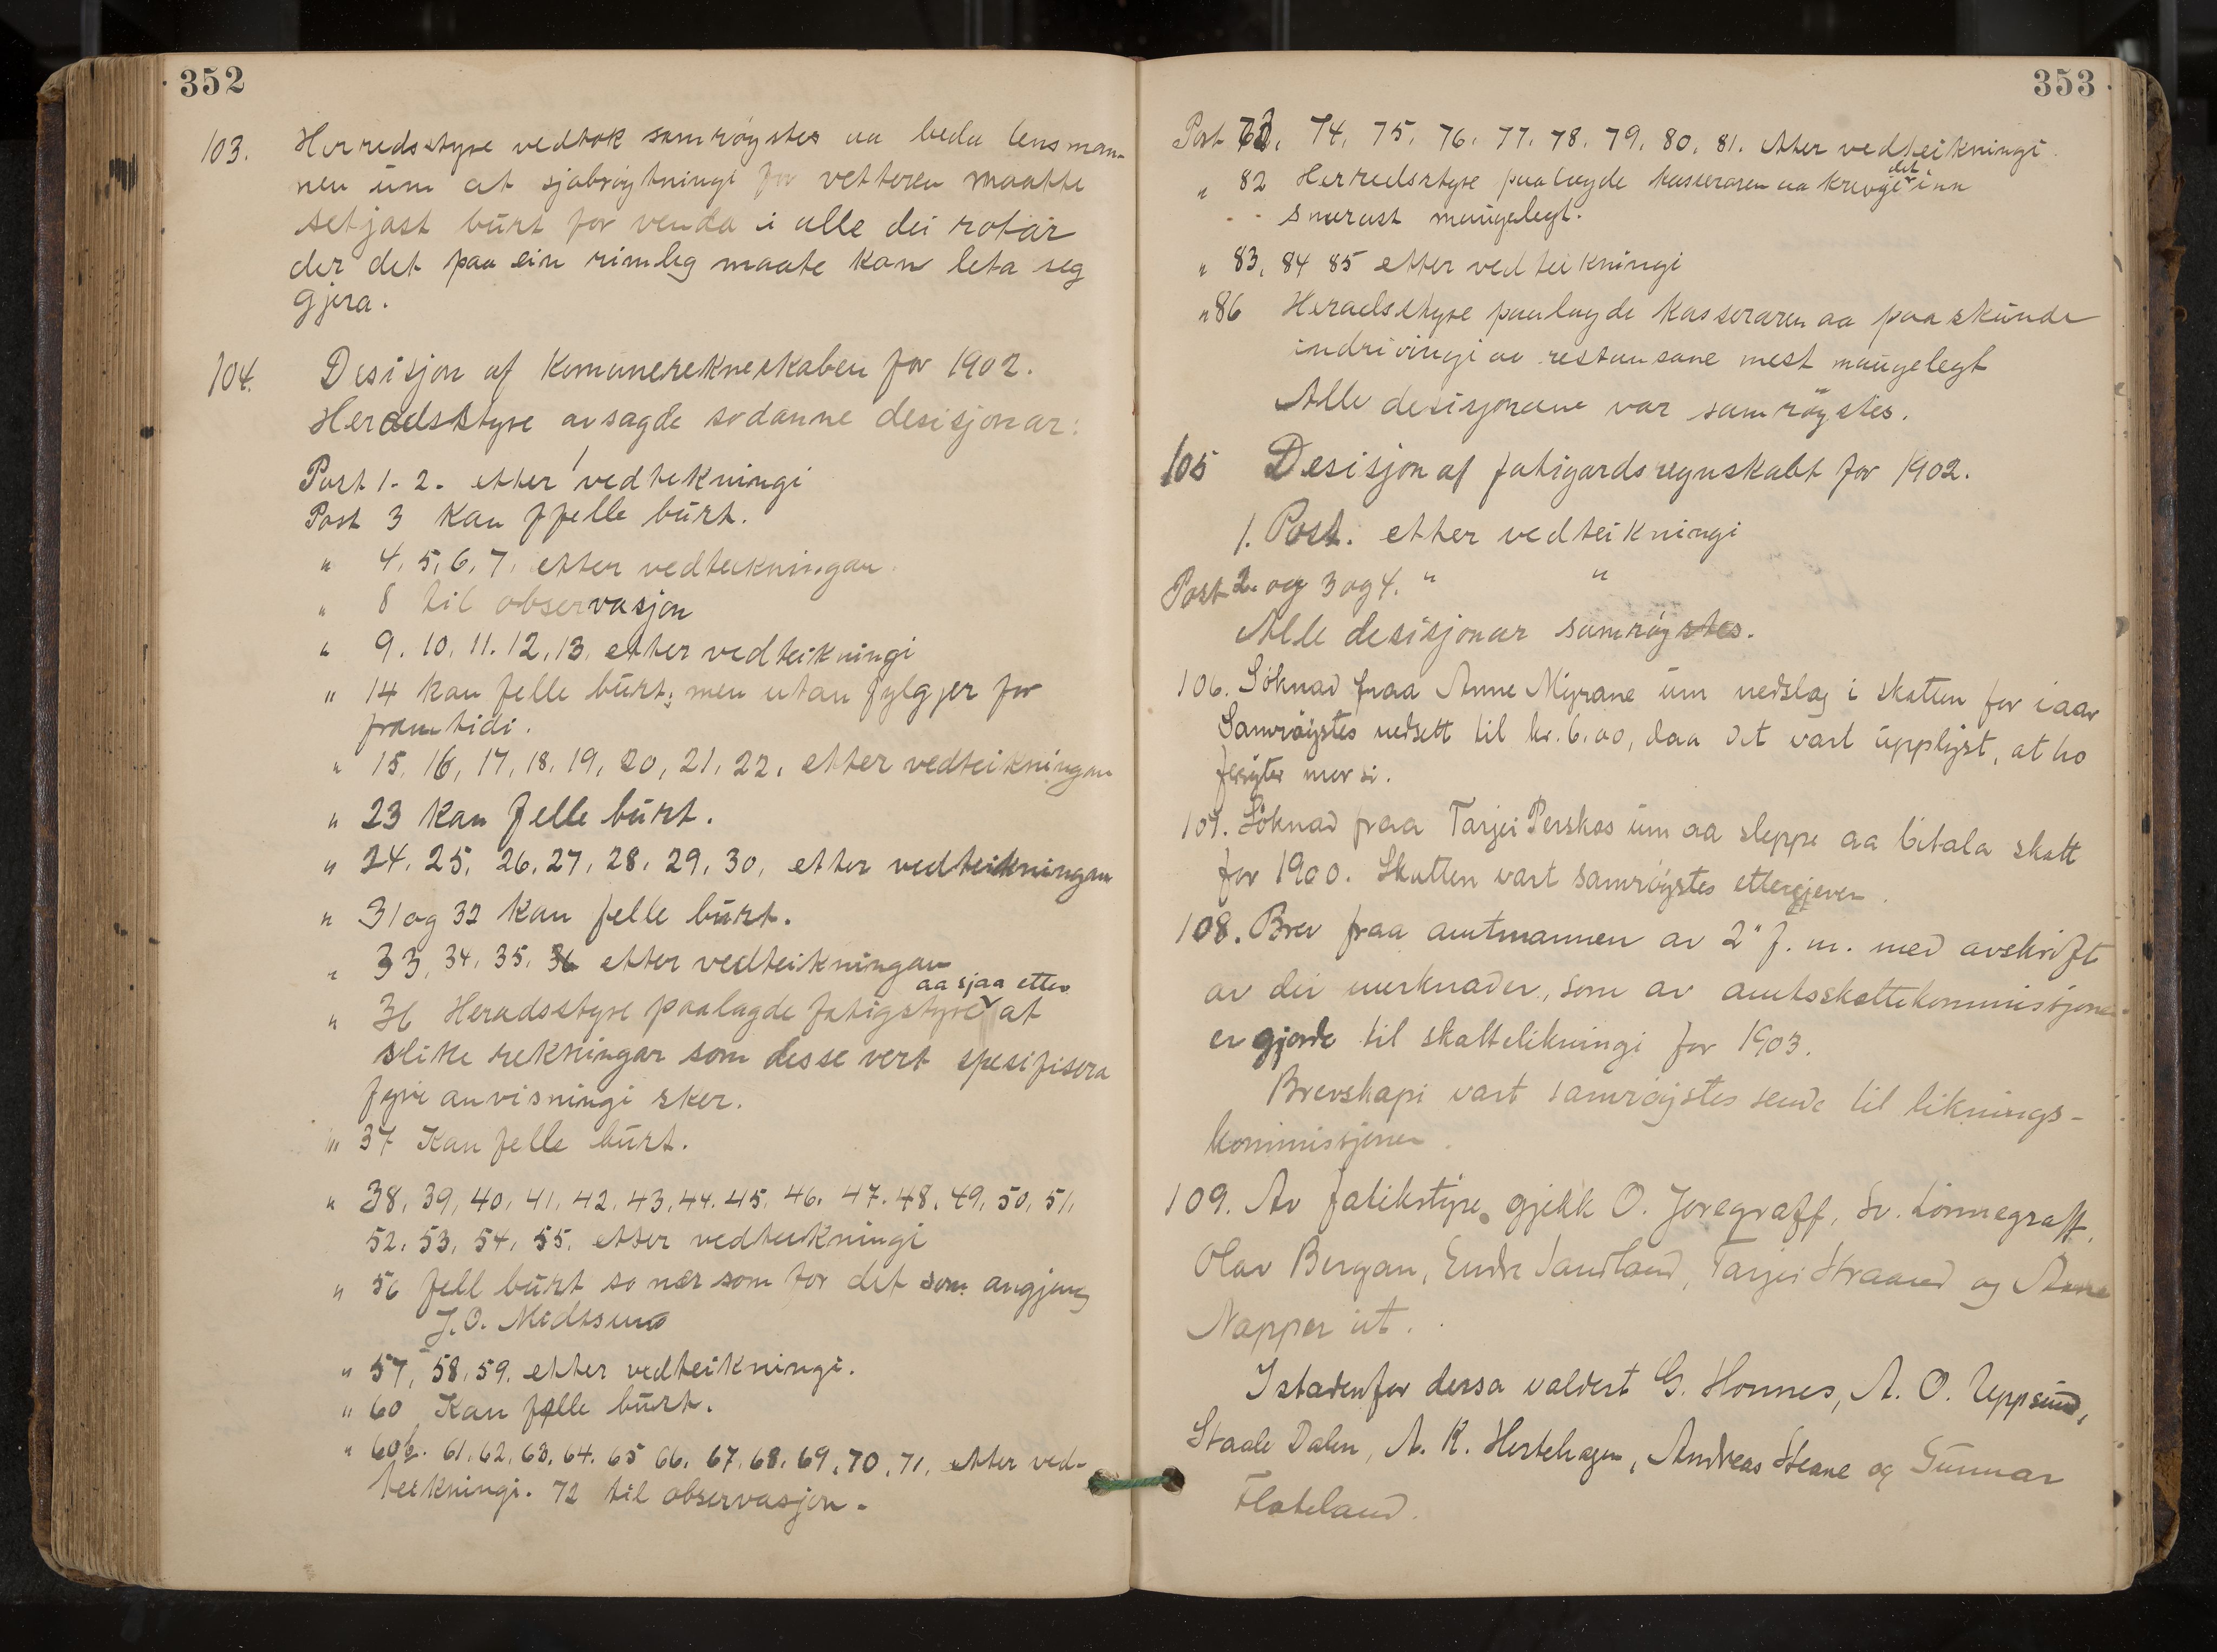 352
103. Herredsstyre vedtok samrøystes aa beda lensman-
nen um at sjabrøytningi for vetteren maatte
setjast burt for venda i alle dei rotar
der det paa ein rimleg maate kan leta seg
gjera.
104. Desisjon af Komunerekneskaben for 1902.
Heradsstyre avsagde sodanne desisjonar:
Post 1. 2. etter vedtekningi
Post 3 Kan felle burt.
" 4, 5, 6, 7, etter vedteikningan
" 8 til observasjon
" 9. 10. 11. 12. 13. etter vedteikningi
" 14 kan felle burt; men utan fylgjer for
framtidi.
" 15, 16, 17, 18, 19, 20, 21, 22, etter vedteikningan
" 23 kan felle burt.
" 24, 25, 26, 27, 28, 29, 30, etter vedteikningan
" 31 og 32 kan felle burt.
" 33, 34, 35, 36 etter vedteikningan
aa sjaa etter
" 36 Heradsstyre paalagde fatigstyre at
slike rekningar som desse vert spesifisera
fyre anvisningi sker.
" 37 Kan felle burt.
" 38, 39, 40, 41, 42, 43, 44. 45, 46. 47. 48, 49, 50, 51,
52, 53, 54, 55, etter vedteikningi
" 56 fell burt so nær som for det som angjeng
J. O. Midtsund
" 57, 58, 59, etter vedteikningi.
" 60 Kan felle burt.
" 60b. 61, 62, 63, 64. 65 66. 67. 68. 69, 70, 71, etter ved-
teikningi. 72 til observasjon.
353
Post 73, 74, 75, 76, 77, 78, 79, 80, 81. etter vedteikningi
det
" 82 Herredsstyre paalagde kasseraren aa krevje inn
snarast maugelegt.
" 83, 84 85 etter vedteikningi
" 86 Heradsstyre paalagde Kasseraren aa paaskunde
indrivingi av restansane mest maugelegt
Alle desisjonane var samrøystes.
105 Desisjon af fatigardsregnskabet for 1902.
1. Post. etter vedteikningi
Post 2. og 3 og 4. " "
Alle desisjonar samrøystes.
106. Søknad fraa Anne Myrane um nedslag i skatten for iaar
Samrøystes nedsett til kr. 6.00, daa det vart upplyst, at ho
førsyter mor si.
107. Søknad fraa Tarjei Perskos um aa sleppe aa betala skatt
for 1900. Skatten vart samrøystes ettergjeven.
108. Brev fraa amtmannen av 2" f. m. med avskrift
av dei merknader, som av amtsskattekommissjonen
er gjorde til skattelikningi for 1903.
Brevskapi vart samrøystes sende til liknings-
kommissjonen.
109. Av fatikstyre gjekk O. Joregraff, Sv. Lønnegraff,
Olav Bergan, Endre Sandland, Tarjei Straand og Anne
Napper ut.
Istadenfor dessa valdest G. Homnes, A. O. Uppsund,
Staale Dalen, A. K. Hestehagen, Andreas Steane og Gunnar
Flateland.